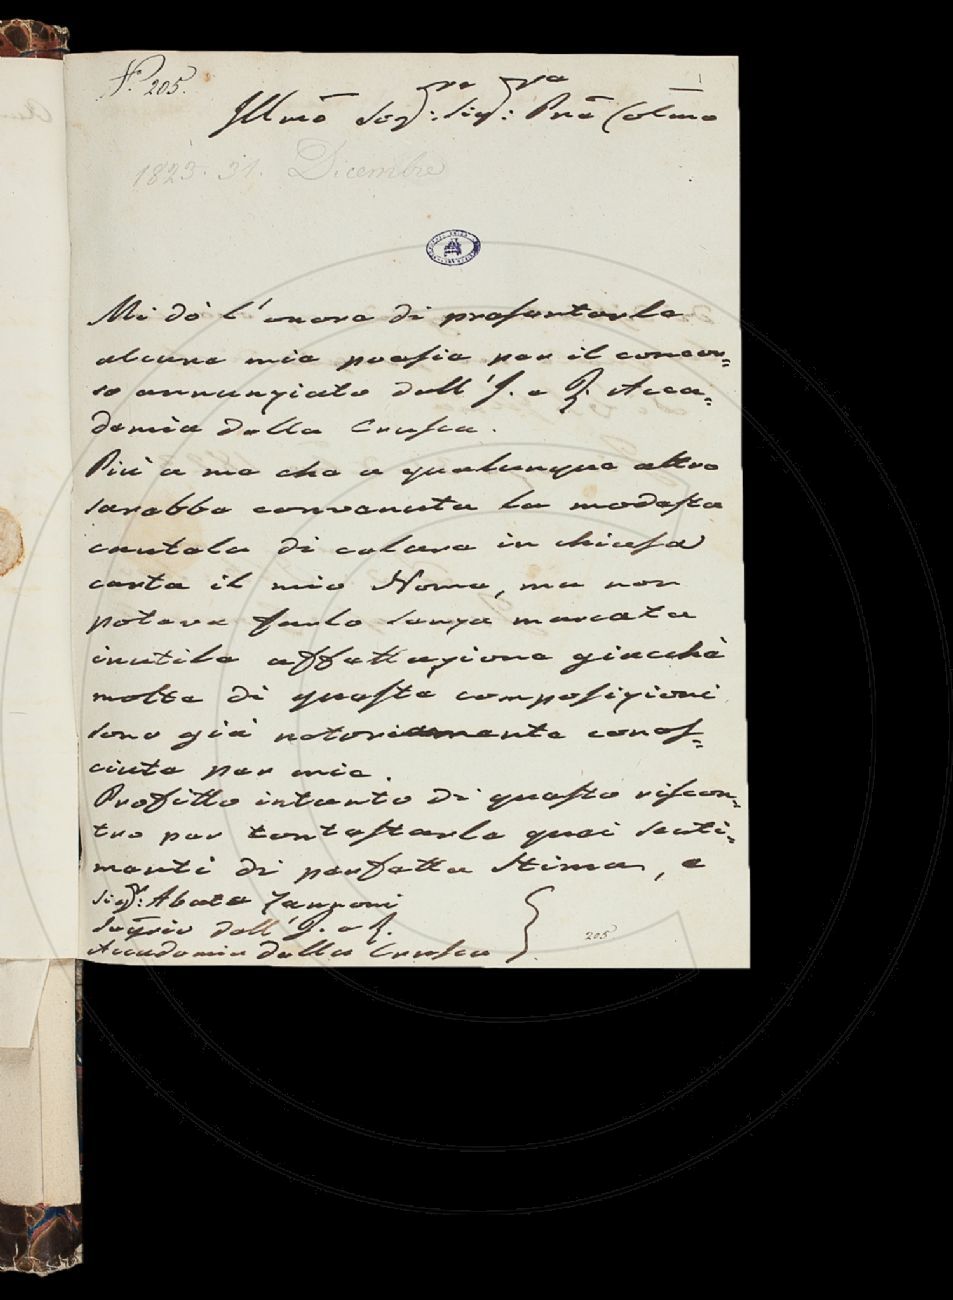 N.º 205.
Illmo Sigre: Sigre: Pne Colmo
1823. 31. Dicembre
Mi dò l'onore di presentarle
alcune mie poesie per il concor=
so annunziato dall'I. e R. Acca=
demia della Crusca.
Più a me che a qualunque altro
sarebbe convenuta la modesta
cautela di celare in chiusa
carta il mio Nome, ma non
poteva farlo senza marcata
inutile affettazione giacchè
molte di queste composizioni
sono già notoriamente conos=
ciute per mie.
Profitto intanto di questo riscon=
tro per contestarle quei senti=
menti di perfetta Stima, e
Sigr: Abate Zannoni
Segrio dell'I. e R.
Accademia della Crusca
205